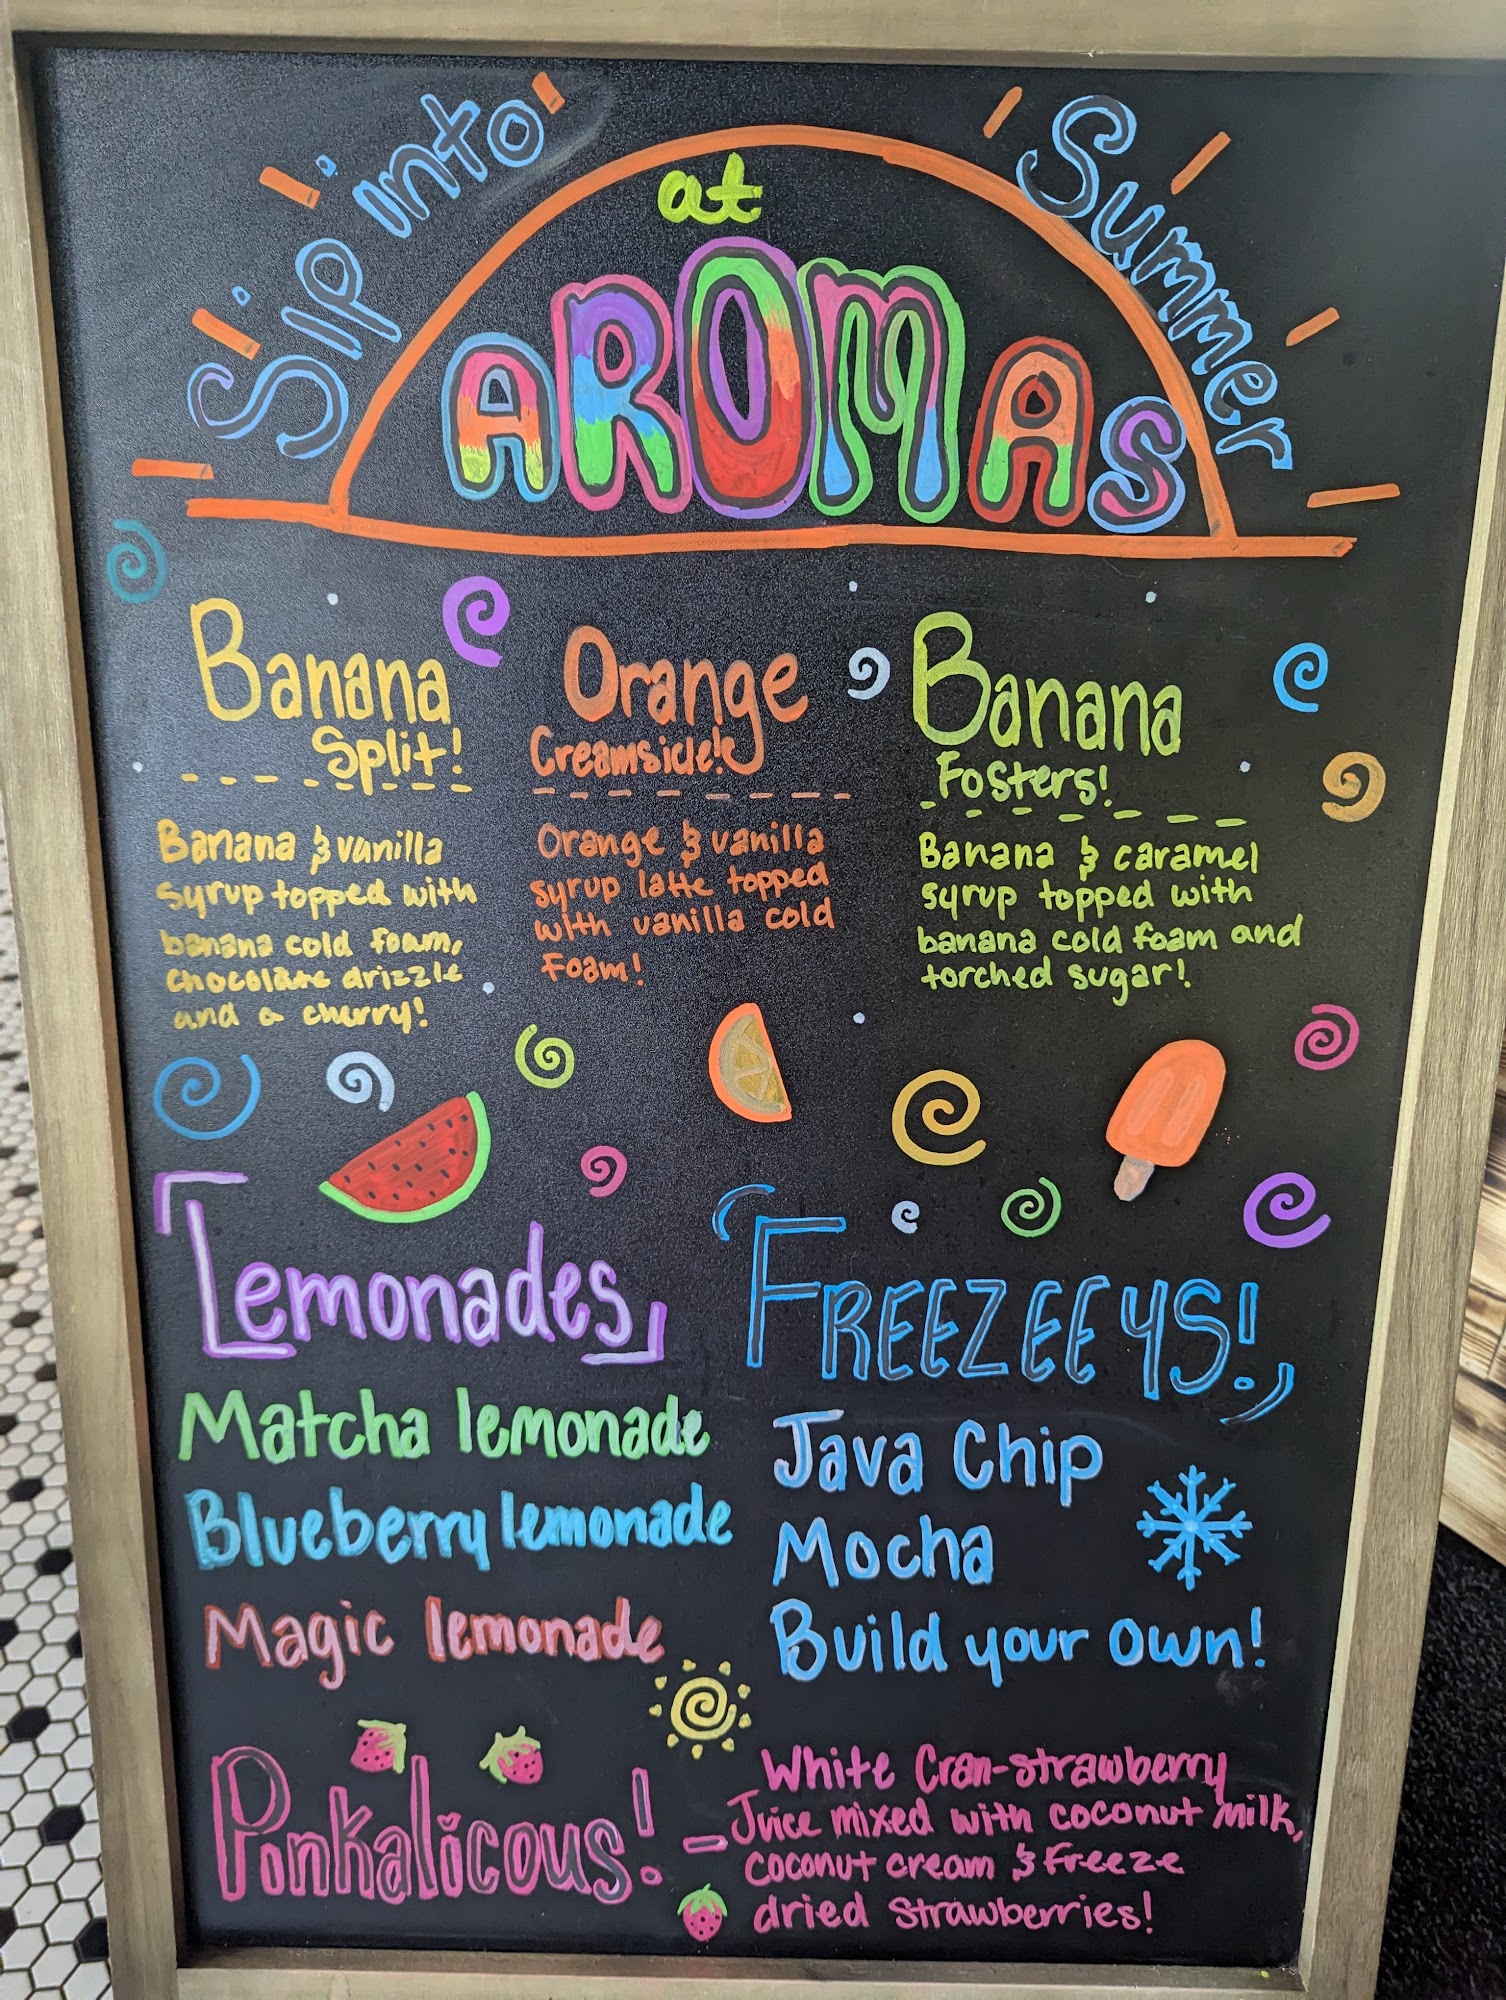 Sip into Summer
at
AROMAS
Banana
Split!
Banana & vanilla
syrup topped with
banana cold foam,
chocolate drizzle
and a cherry!
Orange
Creamsicle!
Orange & vanilla
syrup latte topped
with vanilla cold
foam!
Banana
Fosters!
Banana & caramel
syrup topped with
banana cold foam and
torched sugar!
Lemonades
Matcha lemonade
Blueberry lemonade
Magic lemonade
FREEZEEYS!
Java Chip
Mocha
Build your own!
Pinkalicous! -
White Cran-strawberry
Juice mixed with coconut milk,
coconut cream & freeze
dried strawberries!